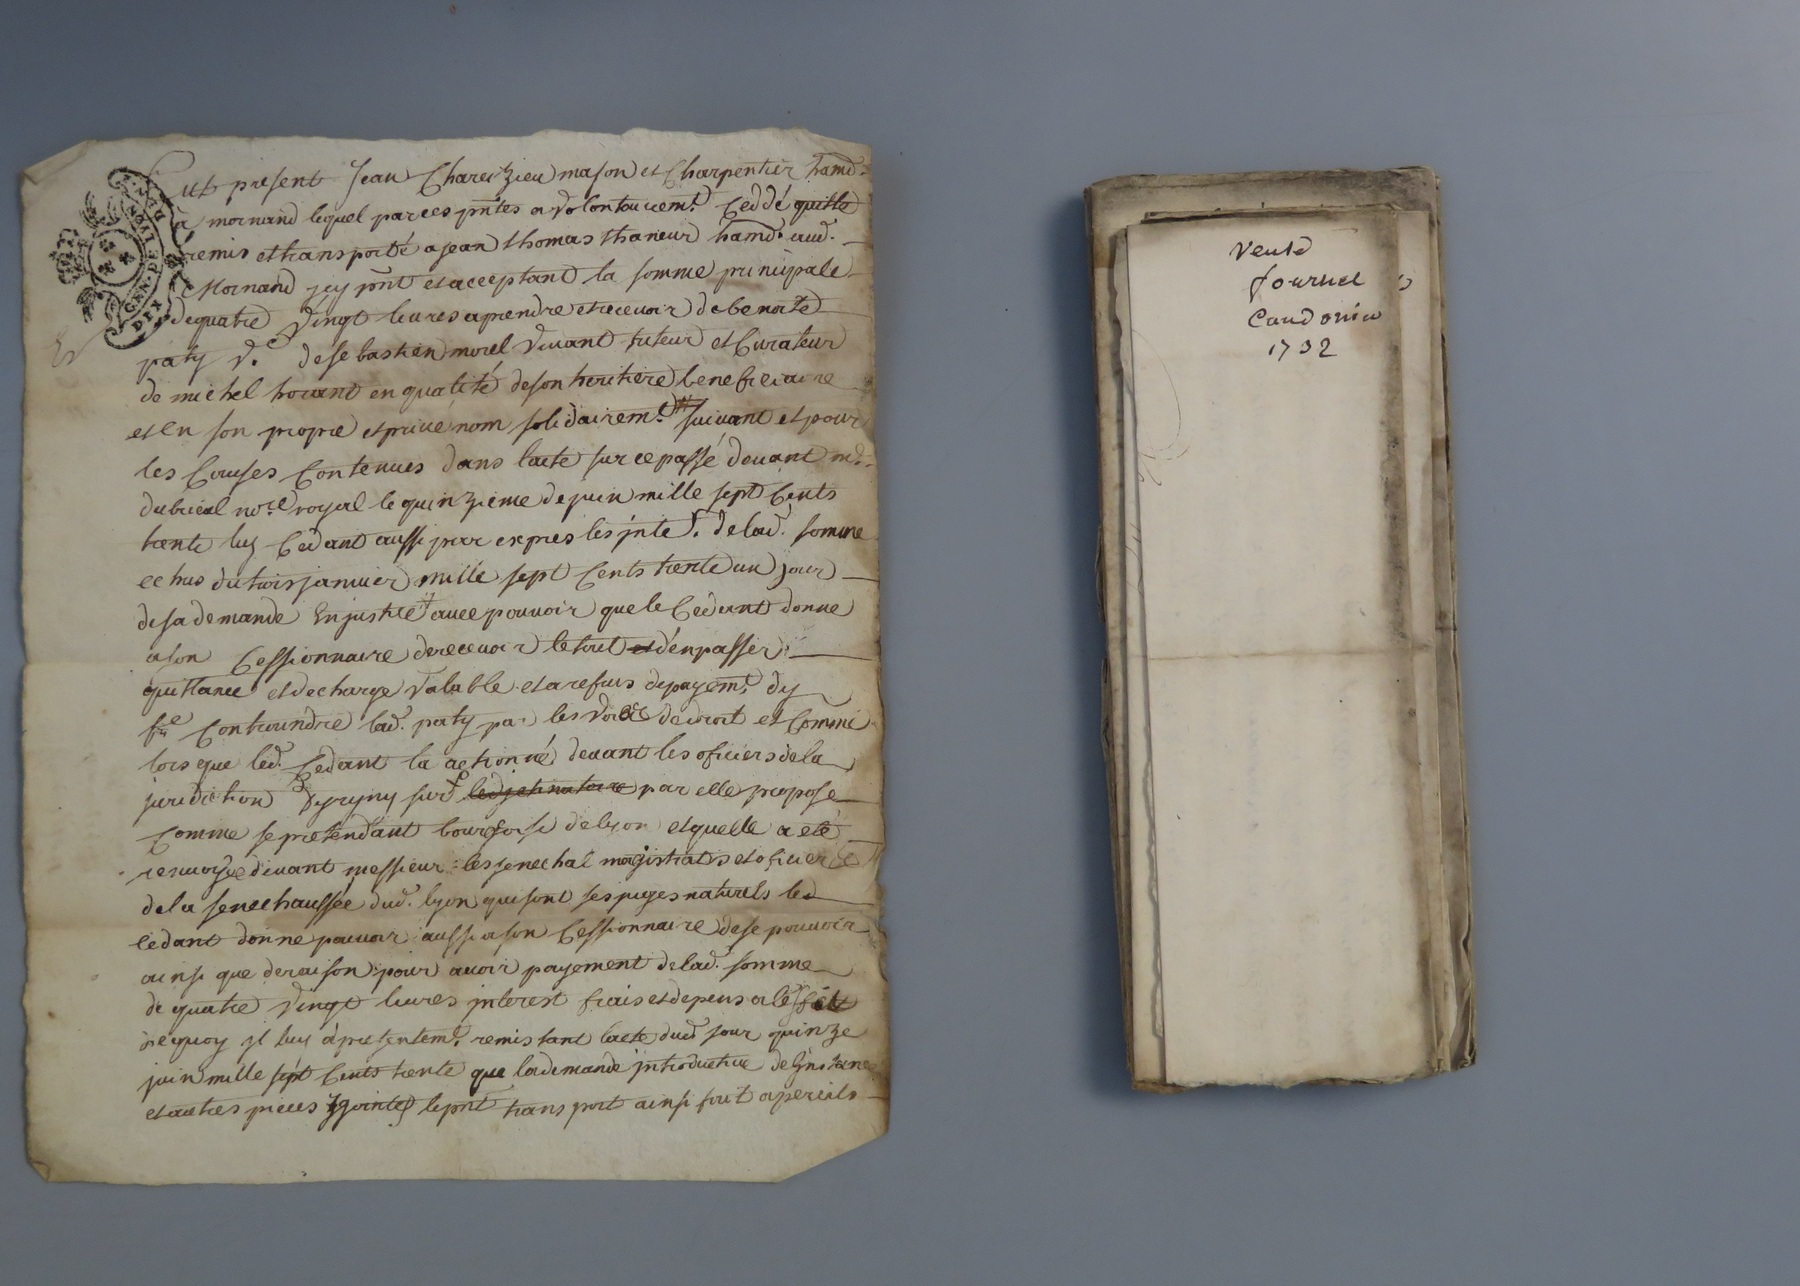 Fut present Jean Charezieu mason et Charpentier hamd.
a mornand lequel par ces pntes a volontairemt. Ceddé quitte
remis et transporté a jean thomas thaneur hamd. aud.
Mornand icy pnt et acceptant la somme principale
de quatre vingt livres a prendre et recevoir de benoite
paty ve. de sebastien morel vivant tuteur et Curateur
de michel en qualité de son heritiere beneficiaire
et en son propre et privé nom solidairemt. suivant et pour
les Causes Contenues dans l'acte sur ce passé devant me.
nore royal le quinzieme de juin mille sept Cents
trente luy Cedant aussi par expres les jnte. de lad. somme
echus du trois janvier mille sept Cents trente un jour
de sa demande En justice avec pouvoir que le Cedant donne
a son Cessionnaire de recevoir le tout et d'en passer
quittance et decharge valable et a refus de payemt. d'y
fre Contraindre lad. paty par les voies de droit et Comme
lors que led. Cedant la actionné devant les oficiers de la
juridiction sur par elle propose
Comme se pretendant bourgoise de lyon et quelle a eté
renvoyée devant messieurs les senechal magistrats et oficiers
de la senechaussée dud. lyon qui sont ses juges naturels led
cedant donne pouvoir aussi a son Cessionnaire de se pouvoir
ainsi que de raison pour avoir payement de lad. somme
de quatre vingt livres jnterest frais et depens a l'effet
de quoy jl luy a presentemt. remis tant l'acte dud jour quinze
juin mille sept Cents trente que la demande jntroductive de L'jnstance
et autres pieces y jointes le pnt transport ainsi fait a perils
GEN. DE LYON
DIX DEN.
Vente
journel
Caudonin
1732